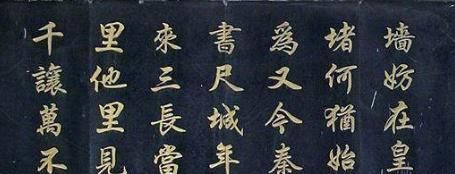 千里來書爲堵墙
讓他三尺又何妨
萬里長城今猶在
不見當年秦始皇